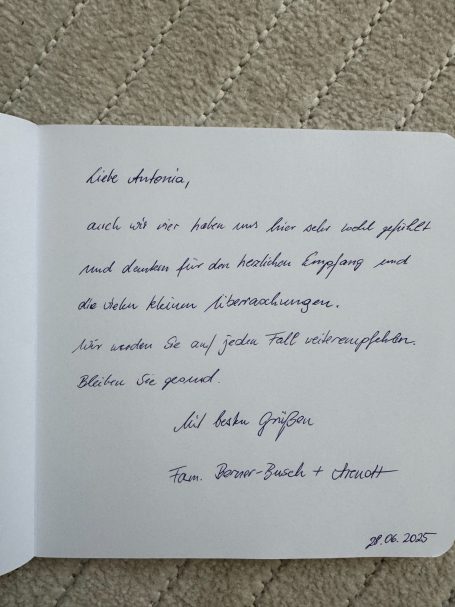 Liebe Antonia,
auch wir vier haben uns hier sehr wohl gefühlt
und danken für den herzlichen Empfang und
die vielen kleinen Überraschungen.
Wir werden Sie auf jeden Fall weiterempfehlen.
Bleiben Sie gesund.
Mit besten Grüßen
Fam. Berner-Busch +
28.06.2025